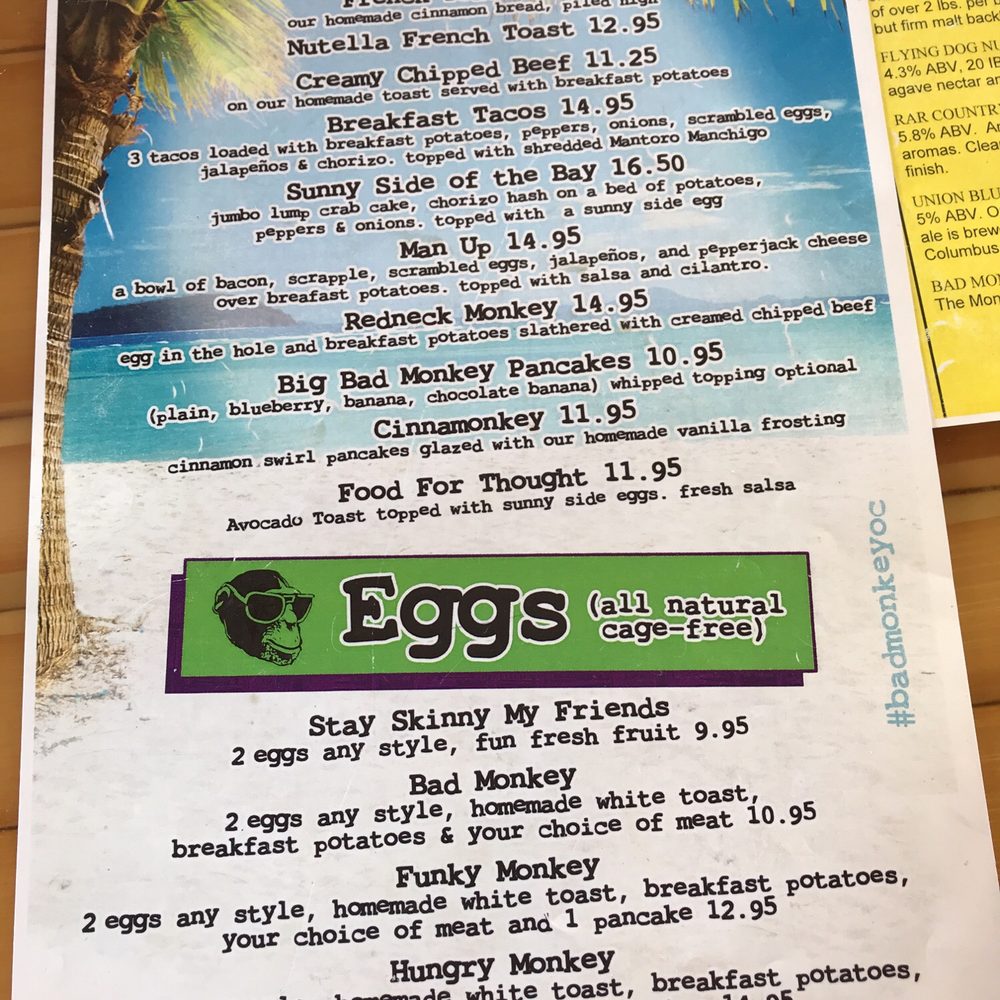 our homemade cinnamon bread, piled high
Nutella French Toast 12.95
Creamy Chipped Beef 11.25
on our homemade toast served with breakfast potatoes
Breakfast Tacos 14.95
3 tacos loaded with breakfast potatoes, peppers, onions, scrambled eggs,
jalapeños & chorizo. topped with shredded Mantoro Manchigo
Sunny Side of the Bay 16.50
jumbo lump crab cake, chorizo hash on a bed of potatoes,
peppers & onions. topped with a sunny side egg
Man Up 14.95
a bowl of bacon, scrapple, scrambled eggs, jalapeños, and pepperjack cheese
over breafast potatoes. topped with salsa and cilantro.
Redneck Monkey 14.95
egg in the hole and breakfast potatoes slathered with creamed chipped beef
Big Bad Monkey Pancakes 10.95
(plain, blueberry, banana, chocolate banana) whipped topping optional
Cinnamonkey 11.95
cinnamon swirl pancakes glazed with our homemade vanilla frosting
Food For Thought 11.95
Avocado Toast topped with sunny side eggs. fresh salsa
Eggs (all natural
cage-free)
Stay Skinny My Friends
2 eggs any style, fun fresh fruit 9.95
Bad Monkey
2 eggs any style, homemade white toast,
breakfast potatoes & your choice of meat 10.95
Funky Monkey
2 eggs any style, homemade white toast, breakfast potatoes,
your choice of meat and 1 pancake 12.95
Hungry Monkey
homemade white toast, breakfast potatoes,
#badmonkeyoc
of over 2 lbs. per
but firm malt back
FLYING DOG
4.3% ABV, 20
agave nectar
RAR
5.8% ABV.
aromas.
finish.
UNION
5% ABV.
ale is
Columbus
BAD
The